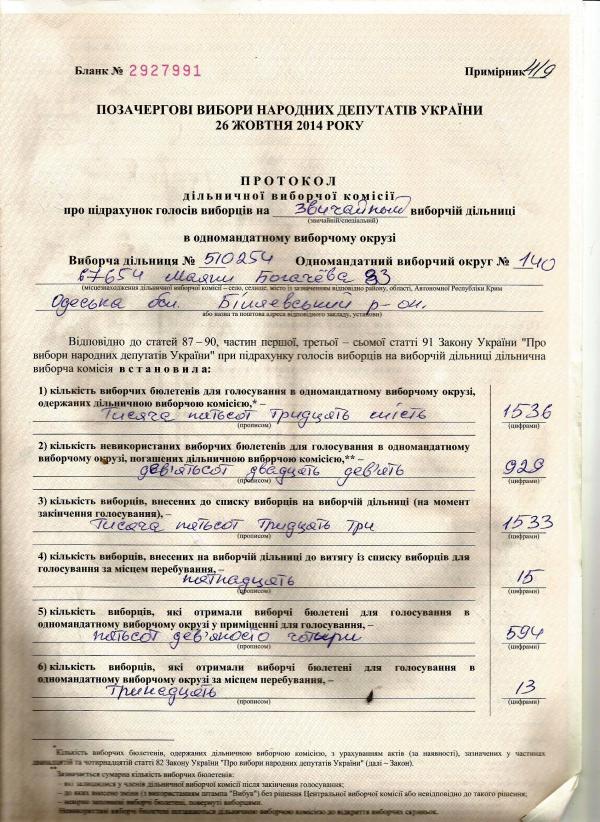 Бланк № 2927991
Примірник 4/9
ПОЗАЧЕРГОВІ ВИБОРИ НАРОДНИХ ДЕПУТАТІВ УКРАЇНИ
26 ЖОВТНЯ 2014 РОКУ
ПРОТОКОЛ
дільничної виборчої комісії
про підрахунок голосів виборців на звичайный виборчій дільниці
(звичайній/спеціальній)
в одномандатному виборчому окрузі
Виборча дільниця № 510254 Одномандатний виборчий округ № 140
67654 Маяки Богачёва 83
(місцезнаходження дільничної виборчої комісії – село, селище, місто із зазначенням відповідно району, області, Автономної Республіки Крим
Одеська обл. Біляевський р-он.
або назва та поштова адреса відповідного закладу, установи)
Відповідно до статей 87 – 90, частин першої, третьої – сьомої статті 91 Закону України "Про
вибори народних депутатів України" при підрахунку голосів виборців на виборчій дільниці дільнична
виборча комісія встановила:
1) кількість виборчих бюлетенів для голосування в одномандатному виборчому окрузі,
одержаних дільничною виборчою комісією,* –
Тисяча пятьсот тридцать шість 1536
(прописом) (цифрами)
2) кількість невикористаних виборчих бюлетенів для голосування в одномандатному
виборчому окрузі, погашених дільничною виборчою комісією,** –
дев'ятьсот двадцать дев'ять 929
(прописом) (цифрами)
3) кількість виборців, внесених до списку виборців на виборчій дільниці (на момент
закінчення голосування), –
Тисяча пятьсот тридцать три 1533
(прописом) (цифрами)
4) кількість виборців, внесених на виборчій дільниці до витягу із списку виборців для
голосування за місцем перебування, –
пятнадцять 15
(прописом) (цифрами)
5) кількість виборців, які отримали виборчі бюлетені для голосування в
одномандатному виборчому окрузі у приміщенні для голосування, –
пятьсот дев'яносто чотири 594
(прописом) (цифрами)
6) кількість виборців, які отримали виборчі бюлетені для голосування в
одномандатному виборчому окрузі за місцем перебування, –
Тринадцять 13
(прописом) (цифрами)
* Кількість виборчих бюлетенів, одержаних дільничною виборчою комісією, з урахуванням актів (за наявності), зазначених у частинах
дванадцятій та чотирнадцятій статті 82 Закону України "Про вибори народних депутатів України" (далі – Закон).
** Зазначається сумарна кількість виборчих бюлетенів:
– які залишилися у членів дільничної виборчої комісії після закінчення голосування;
– до яких внесено зміни (з використанням штампа "Вибув") без рішення Центральної виборчої комісії або невідповідно до такого рішення;
– невірно заповнені виборчі бюлетені, повернуті виборцями.
Невикористані виборчі бюлетені погашаються дільничною виборчою комісією до відкриття виборчих скриньок.